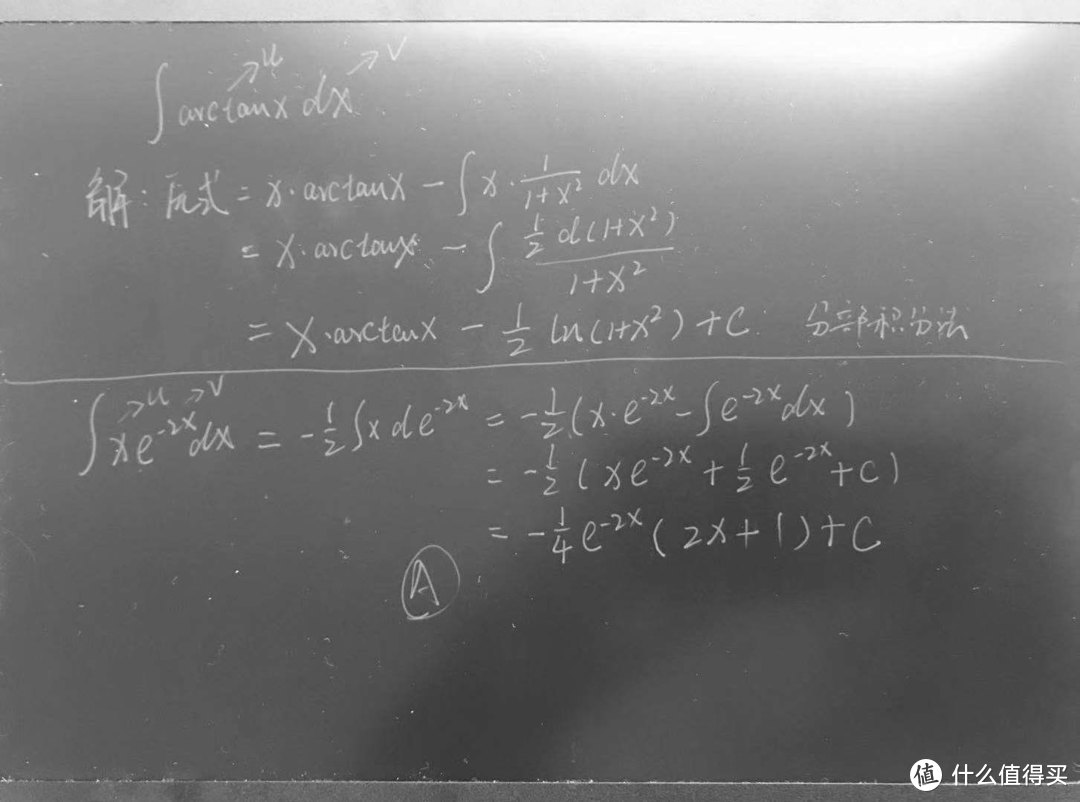 ∫ arctanx dx →u →v
解：原式 = x·arctanx − ∫ x·1/(1+x²) dx
= x·arctanx − ∫ ½d(1+x²)/(1+x²)
= x·arctanx − ½ ln(1+x²) + C 分部积分法
→u →v
∫xe^(-2x)dx = −½∫x de^(-2x) = −½(x·e^(-2x) − ∫e^(-2x)dx)
= −½(xe^(-2x) + ½e^(-2x) + C)
= −¼e^(-2x)(2x+1)+C
A
值 什么值得买